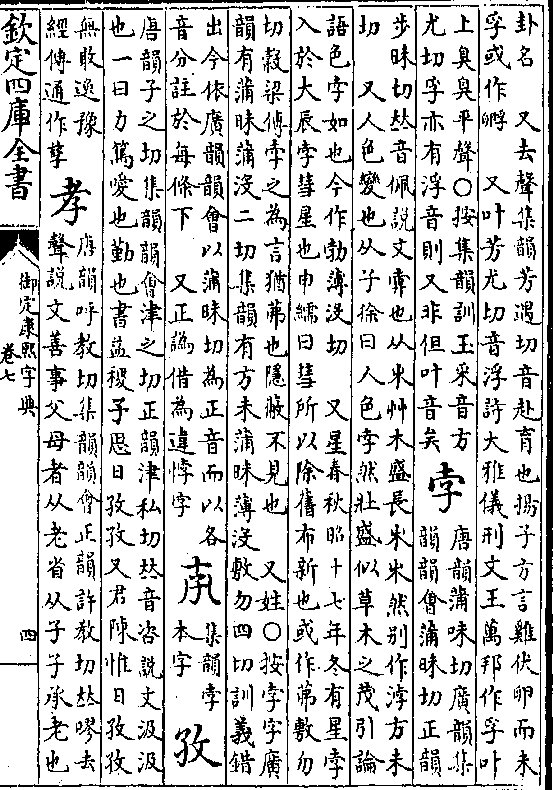 卦名 又去聲集韻芳遇切音赴育也揚子方言雞伏卵而未
孚或作孵 又叶芳尤切音浮詩大雅儀刑文王萬邦作孚叶
上臭臭平聲○按集韻訓玉采音方
尤切孚亦有浮音則又非但叶音矣
孛
唐韻蒲昧切廣韻集
韻韻會蒲昧切正韻
步昧切𠀤音佩說文𡴀也从𣎵艸木盛長𣎵𣎵然别作浡方未
切 又人色變也从子徐曰人色孛然壯盛似草木之茂引論
語色孛如也今作勃薄沒切 又星春秋昭十七年冬有星孛
入於大辰孛彗星也申繻曰彗所以除舊布新也或作茀敷勿
切穀梁傳孛之為言猶茀也隱蔽不見也 又姓○按孛字廣
韻有蒲昧蒲沒二切集韻有方未蒲昧薄沒敷勿四切訓義錯
出今依廣韻韻會以蒲昧切為正音而以各
音分註於每條下 又正譌借為違悖字
集韻孛
本字
孜
唐韻子之切集韻韻會津之切正韻津私切𠀤音咨說文汲汲
也一曰力篤愛也勤也書益稷予思日孜孜又君陳惟日孜孜
無敢逸豫
經傳通作孳
孝
唐韻呼教切集韻韻會正韻許教切𠀤嘐去
聲說文善事父母者从老省从子子承老也
欽定四庫全書
御定康熙字典
卷七
四